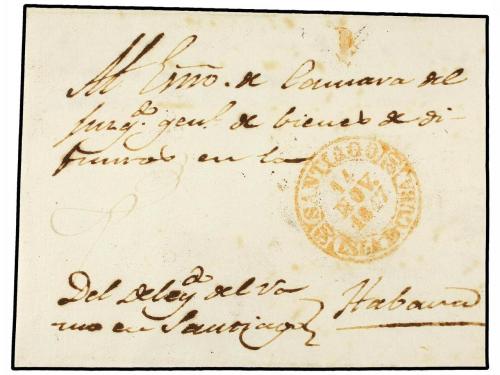 Al Esño. de Camara del
Juzg.do genl. de bienes de di-
funtos en la
SANTIAGO
14
NOV.
1847
ISLA D CUBA
Del Deleg.do del Ra
mo en Santiago
Habana